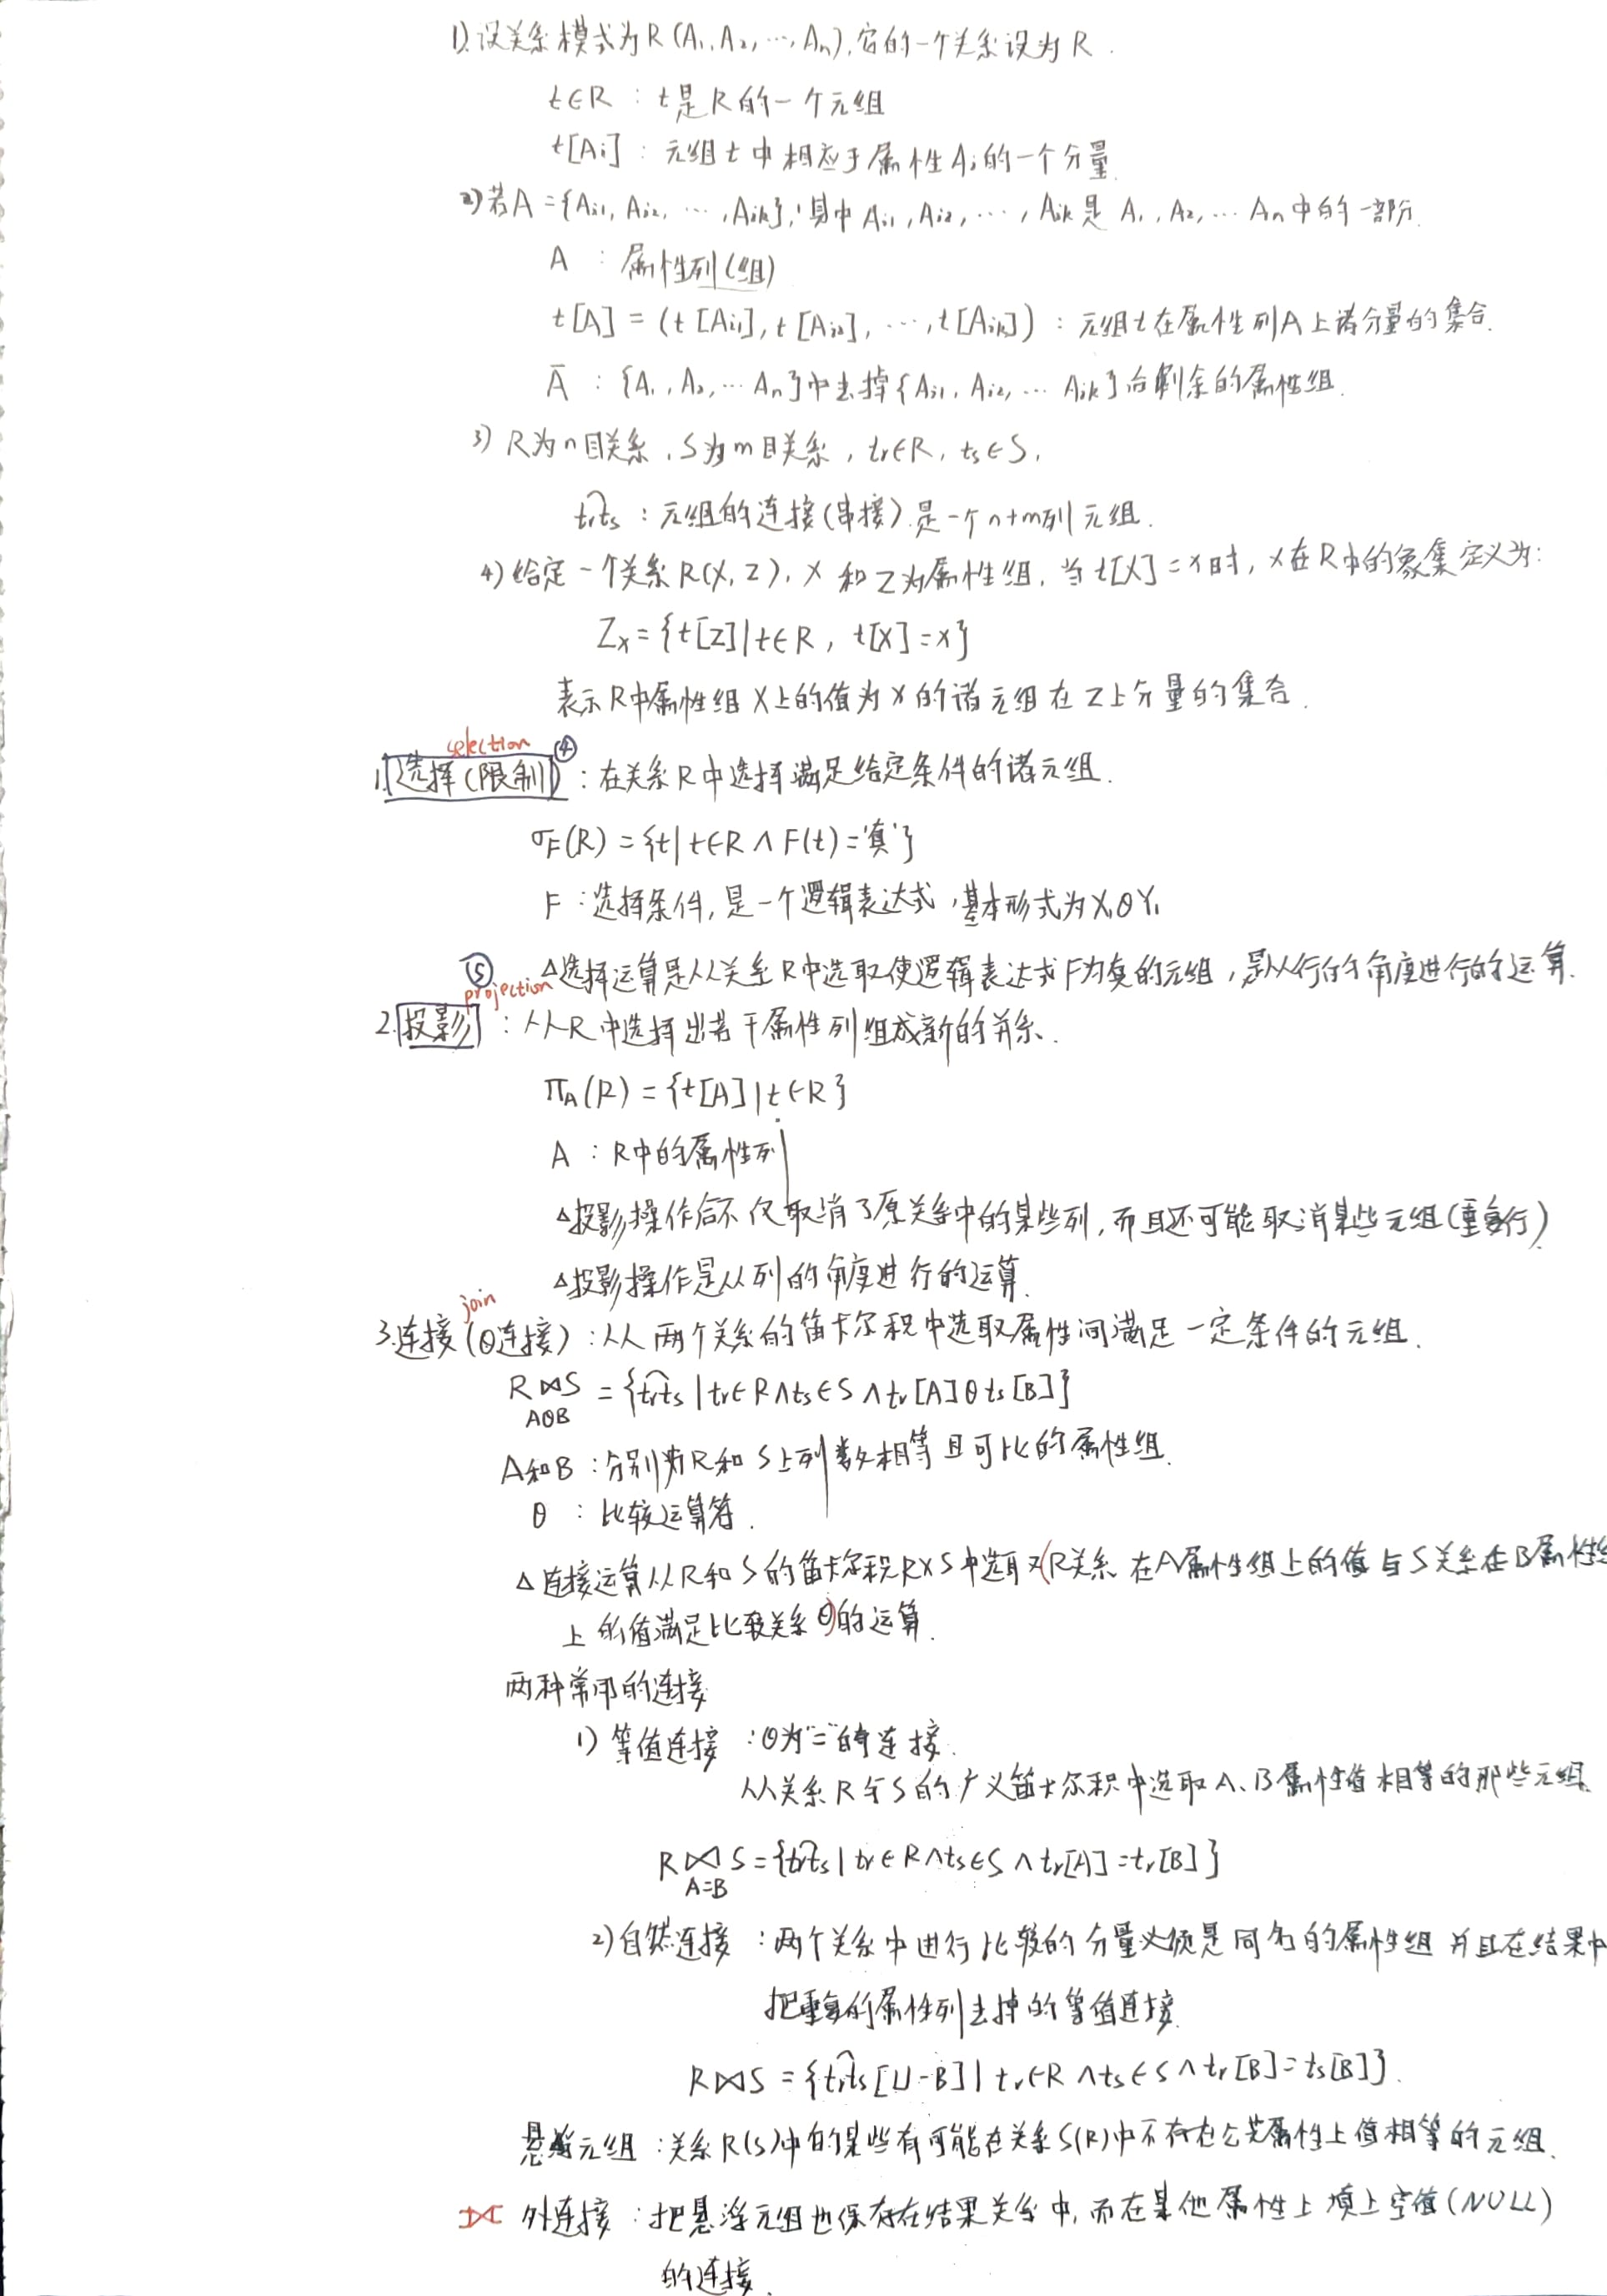 1).设关系模式为R(A₁,A₂,…,Aₙ),它的一个关系设为R.
t∈R : t是R的一个元组
t[Ai] : 元组t中相应于属性Ai的一个分量.
2)若A={Ai1, Ai2, …,Aik},其中Ai1,Ai2,…,Aik是A₁,A₂,…Aₙ中的一部分.
A : 属性列(组)
t[A]=(t[Ai1],t[Ai2],…,t[Aik]) : 元组t在属性列A上诸分量的集合.
Ā : {A₁,A₂,…Aₙ}中去掉{Ai1,Ai2,…Aik}后剩余的属性组.
3) R为n目关系,S为m目关系, tr∈R, ts∈S,
t͡rts : 元组的连接(串接).是一个n+m列元组.
4)给定一个关系R(X,Z), X和Z为属性组,当t[X]=x时, x在R中的象集定义为:
Zx={t[Z]|t∈R, t[X]=x}
表示R中属性组X上的值为x的诸元组在Z上分量的集合.
selection ④
1.选择(限制) : 在关系R中选择满足给定条件的诸元组.
σF(R)={t|t∈R∧F(t)='真'}
F : 选择条件,是一个逻辑表达式,基本形式为X₁θY₁
⑤ △选择运算是从关系R中选取使逻辑表达式F为真的元组,是从行的角度进行的运算.
projection
2.投影 : 从R中选择出若干属性列组成新的关系.
πA(R)={t[A]|t∈R}
A : R中的属性列
△投影操作后不仅取消了原关系中的某些列,而且还可能取消某些元组(重复行).
△投影操作是从列的角度进行的运算.
join
3.连接(θ连接) : 从两个关系的笛卡尔积中选取属性间满足一定条件的元组.
R⋈S={t͡rts|tr∈R∧ts∈S∧tr[A]θts[B]}
AθB
A和B : 分别为R和S上列数相等且可比的属性组.
θ : 比较运算符.
△连接运算从R和S的笛卡尔积R×S中选取(R关系在A属性组上的值与S关系在B属性组
上的值满足比较关系θ)的运算.
两种常用的连接
1) 等值连接 : θ为"="的连接.
从关系R与S的广义笛卡尔积中选取A、B属性值相等的那些元组.
R⋈S={t͡rts|tr∈R∧ts∈S∧tr[A]=tr[B]}
A=B
2)自然连接 : 两个关系中进行比较的分量必须是同名的属性组并且在结果中
把重复的属性列去掉的等值连接.
R⋈S={t͡rts[U-B]|tr∈R∧ts∈S∧tr[B]=ts[B]}.
悬浮元组 : 关系R(S)中的某些有可能在关系S(R)中不存在公共属性上值相等的元组.
⟗ 外连接 : 把悬浮元组也保存在结果关系中,而在其他属性上填上空值(NULL)
的连接.